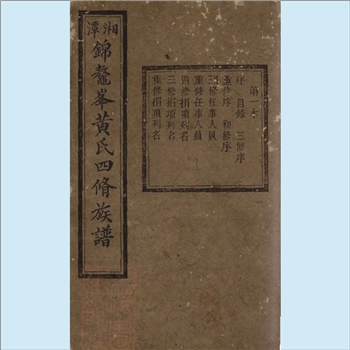 湘潭錦鼇峯黃氏四脩族譜
第一本
序 自修 三修序
重修序 初修序
四修任事人員
重修任事人員
四修捐項列名
三修捐項列名
重修捐項列名